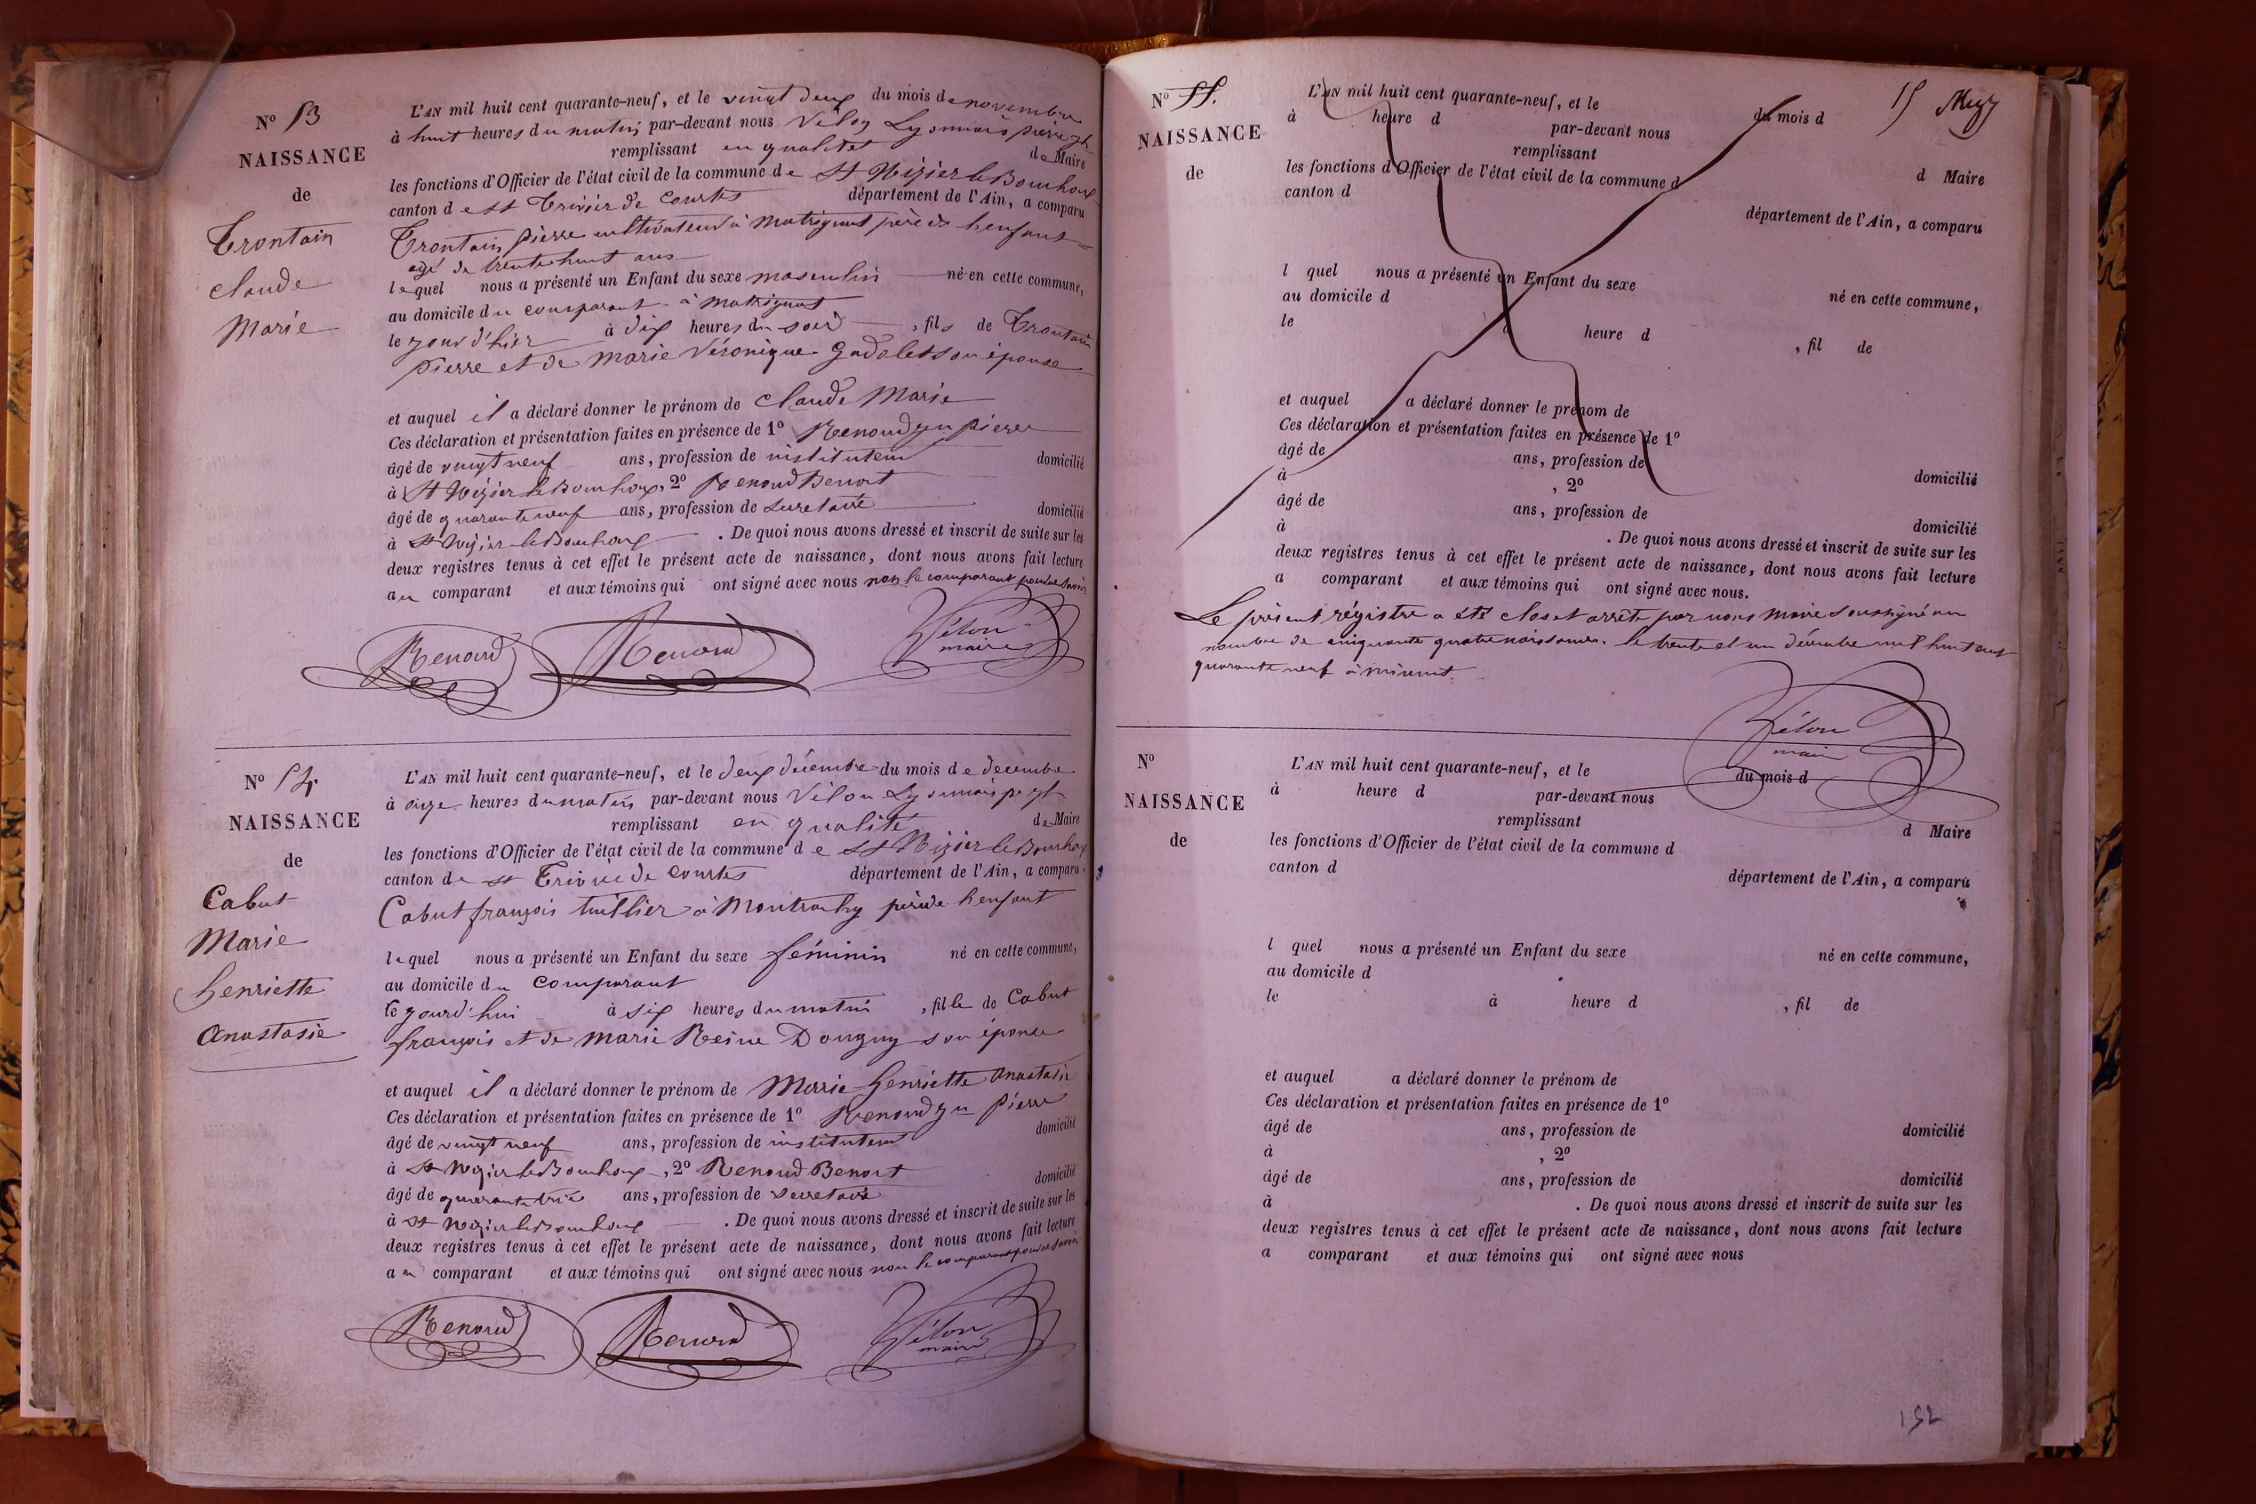 N° 53
NAISSANCE
de
Trontain
claude
Marie
L'AN mil huit cent quarante-neuf, et le vingt deux du mois de novembre
à huit heures du matin par-devant nous Vélon Lyonnais pierre
remplissant en qualité de Maire
les fonctions d'Officier de l'état civil de la commune de St Nizier le Bouchoux
canton de St Trivier de Courtes département de l'Ain, a comparu
Trontain pierre cultivateur à Matrignat père de l'enfant
agé de trente huit ans
lequel nous a présenté un Enfant du sexe masculin né en cette commune,
au domicile du comparant à Matrignat
le jour d'hier à dix heures du soir, fils de Trontain
pierre et de Marie Véronique Gadolet son épouse
et auquel il a déclaré donner le prénom de claude Marie
Ces déclaration et présentation faites en présence de 1° Renoud jn pierre
âgé de vingt neuf ans, profession de instituteur domicilié
à St Nizier le Bouchoux, 2° Renoud Benoit
âgé de quarante neuf ans, profession de Secretaire domicilié
à St Nizier le Bouchoux. De quoi nous avons dressé et inscrit de suite sur les
deux registres tenus à cet effet le présent acte de naissance, dont nous avons fait lecture
au comparant et aux témoins qui ont signé avec nous non le comparant pour ne savoir
Renoud Renoud Vélon
maire
N° 54.
NAISSANCE
de
Cabut
Marie
henriette
anastasie
L'AN mil huit cent quarante-neuf, et le deux décembre du mois de decembre
à onze heures du matin par-devant nous Vélon Lyonnais
remplissant en qualité de Maire
les fonctions d'Officier de l'état civil de la commune de St Nizier le Bouchoux
canton de St Trivier de Courtes département de l'Ain, a comparu
Cabut françois tuillier à Montrachy père de l'enfant
lequel nous a présenté un Enfant du sexe féminin né en cette commune,
au domicile du comparant
le jourd'hui à six heures du matin, fille de Cabut
françois et de Marie Reine Donguy son épouse
et auquel il a déclaré donner le prénom de Marie henriette anastasie
Ces déclaration et présentation faites en présence de 1° Renoud jn Pierre
âgé de vingt neuf ans, profession de instituteur domicilié
à St Nizier le Bouchoux, 2° Renoud Benoit
âgé de quarante ans, profession de Secretaire domicilié
à St Nizier le Bouchoux. De quoi nous avons dressé et inscrit de suite sur les
deux registres tenus à cet effet le présent acte de naissance, dont nous avons fait lecture
au comparant et aux témoins qui ont signé avec nous non le comparant pour ne savoir
Renoud Renoud Vélon
maire
N° 55.
NAISSANCE
de
L'AN mil huit cent quarante-neuf, et le du mois d
à heure d par-devant nous
remplissant d Maire
les fonctions d'Officier de l'état civil de la commune d
canton d département de l'Ain, a comparu
l quel nous a présenté un Enfant du sexe né en cette commune,
au domicile d
le à heure d, fil de
et auquel a déclaré donner le prénom de
Ces déclaration et présentation faites en présence de 1°
âgé de ans, profession de domicilié
à , 2°
âgé de ans, profession de domicilié
à . De quoi nous avons dressé et inscrit de suite sur les
deux registres tenus à cet effet le présent acte de naissance, dont nous avons fait lecture
a comparant et aux témoins qui ont signé avec nous.
Le présent régistre a été clos et arrêté par nous maire soussigné au
nombre de cinquante quatre naissances. le trente et un décembre mil huit cent
quarante neuf à minuit.
Vélon
maire
N°
NAISSANCE
de
L'AN mil huit cent quarante-neuf, et le du mois d
à heure d par-devant nous
remplissant d Maire
les fonctions d'Officier de l'état civil de la commune d
canton d département de l'Ain, a comparu
l quel nous a présenté un Enfant du sexe né en cette commune,
au domicile d
le à heure d , fil de
et auquel a déclaré donner le prénom de
Ces déclaration et présentation faites en présence de 1°
âgé de ans, profession de domicilié
à , 2°
âgé de ans, profession de domicilié
à . De quoi nous avons dressé et inscrit de suite sur les
deux registres tenus à cet effet le présent acte de naissance, dont nous avons fait lecture
a comparant et aux témoins qui ont signé avec nous
152